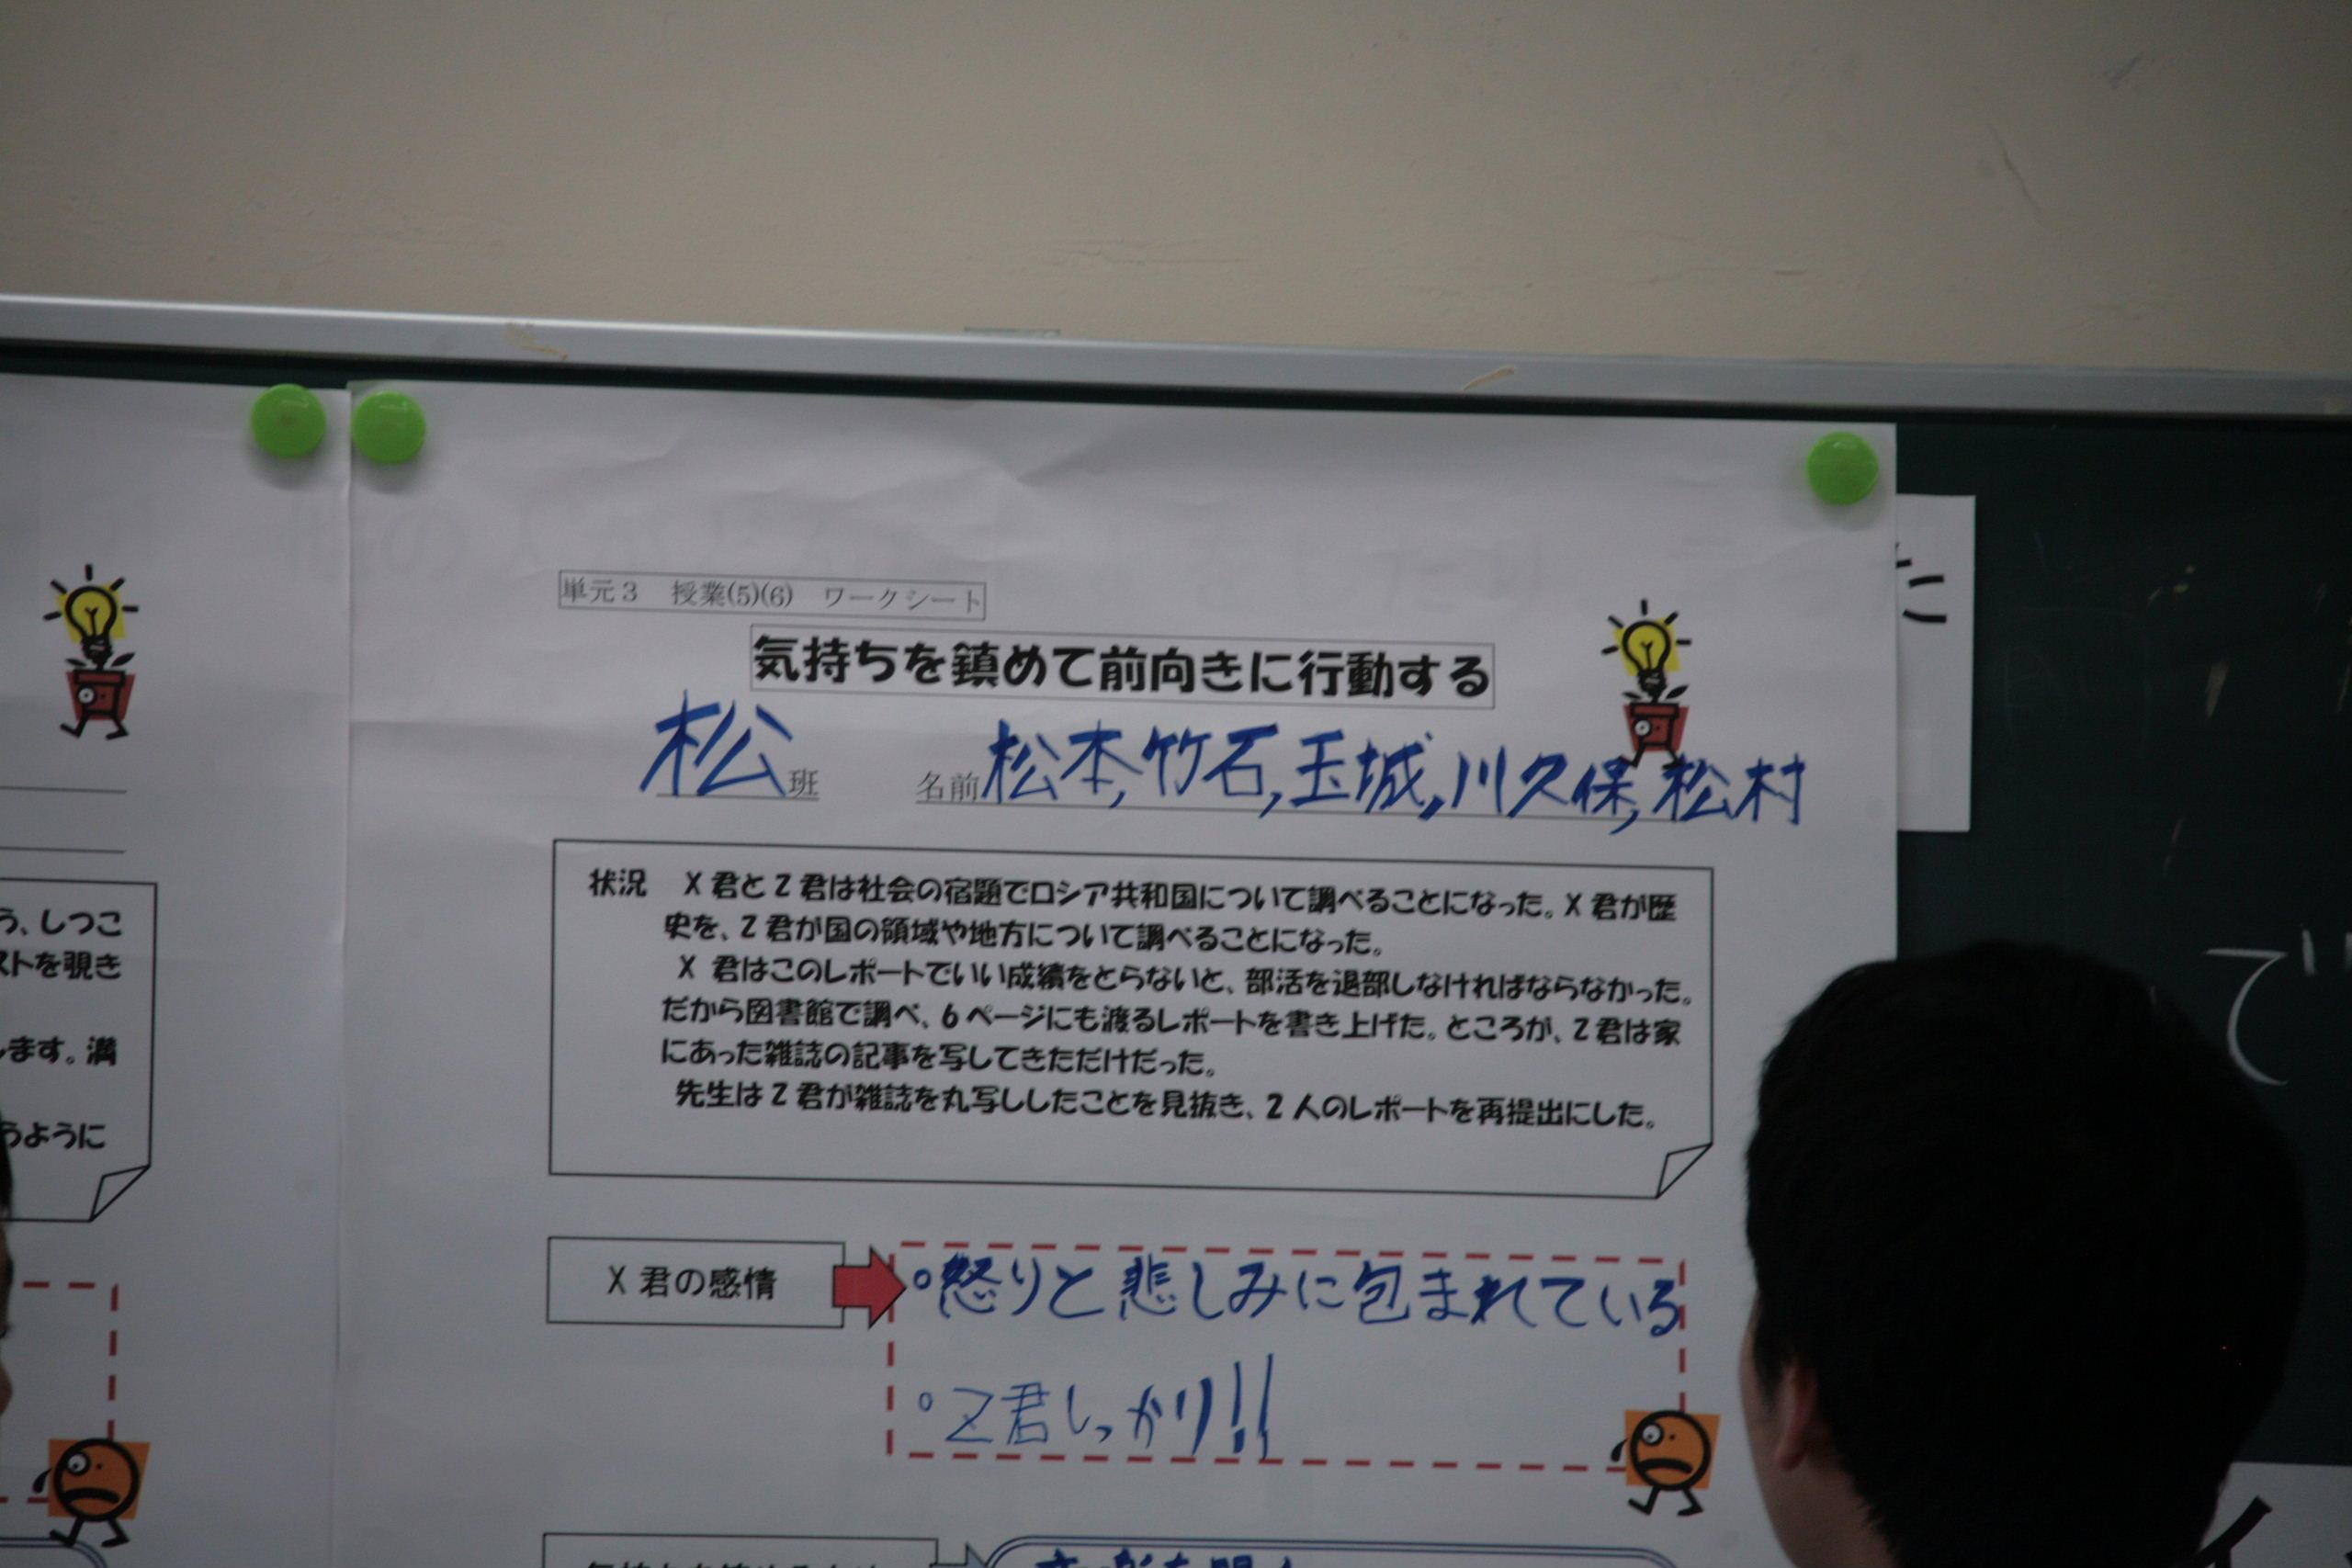 う、しつこ
ストを覗き
します。満
うように
単元3 授業(5)(6) ワークシート
気持ちを鎮めて前向きに行動する
松班 名前 松本,竹石,玉城,川久保,松村
状況 X君とZ君は社会の宿題でロシア共和国について調べることになった。X君が歴
史を、Z君が国の領域や地方について調べることになった。
X君はこのレポートでいい成績をとらないと、部活を退部しなければならなかった。
だから図書館で調べ、6ページにも渡るレポートを書き上げた。ところが、Z君は家
にあった雑誌の記事を写してきただけだった。
先生はZ君が雑誌を丸写ししたことを見抜き、2人のレポートを再提出にした。
X君の感情
°怒りと悲しみに包まれている
°Z君しっかり!!
で